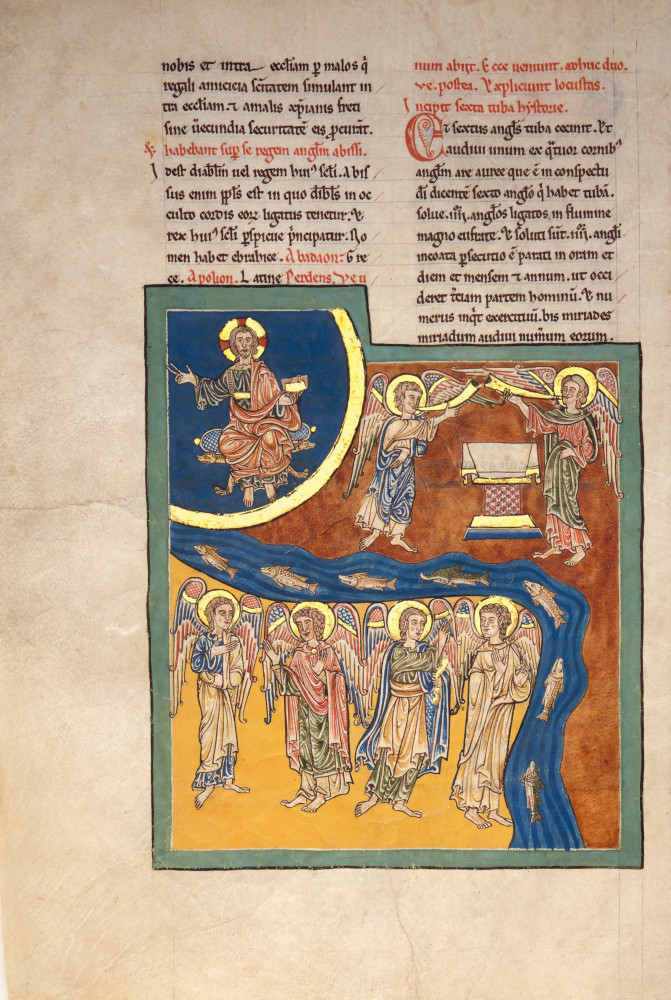 nobis et intra eccl̄iam ꝑ malos q̄
regali amicicia sc̄itatem simulant in
tra eccl̄iam ⁊ amalis xp̄ianis freti
sine ūecundia securitatē eis ꝓcurāt.
& habebant suꝑ se regem angl̄m abissi.
I dest diabl̄m uel regem hui' scl̄i. Abis
sus enim ppl̄s est in quo dībl̄s in oc
culto cordis eorꝝ ligatus tenetur. &
rex hui' scl̄i ꝑspicue p̄ncipatur. No
men habet ebraice. Abadaon: G re
ce. Apolion. Latine Perdens. Ve u
num abiit. & ecce ueniunt. adhuc duo.
ve. postea. Expliciunt locustas.
Incipit sexta tuba hystorie.
Et sextus angl̄s tuba cecinit. Et
audiui unum ex q̄tuor cornib'
angl̄m are auree que ē in conspectu
dī dicentē sexto anglo q̄ habet tubā.
solue .iiii. angl̄os ligatos in flumine
magno eufrate. & soluti sūt .iiii. angl̄i
incoata ꝑsecutio ē parati in oram et
diem et mensem & annum. ut occi
deret t̄ciam partem hominū. & nu
merus inq̄t exercituū. bis miriades
miriadum audiui nūm̄um eorum.